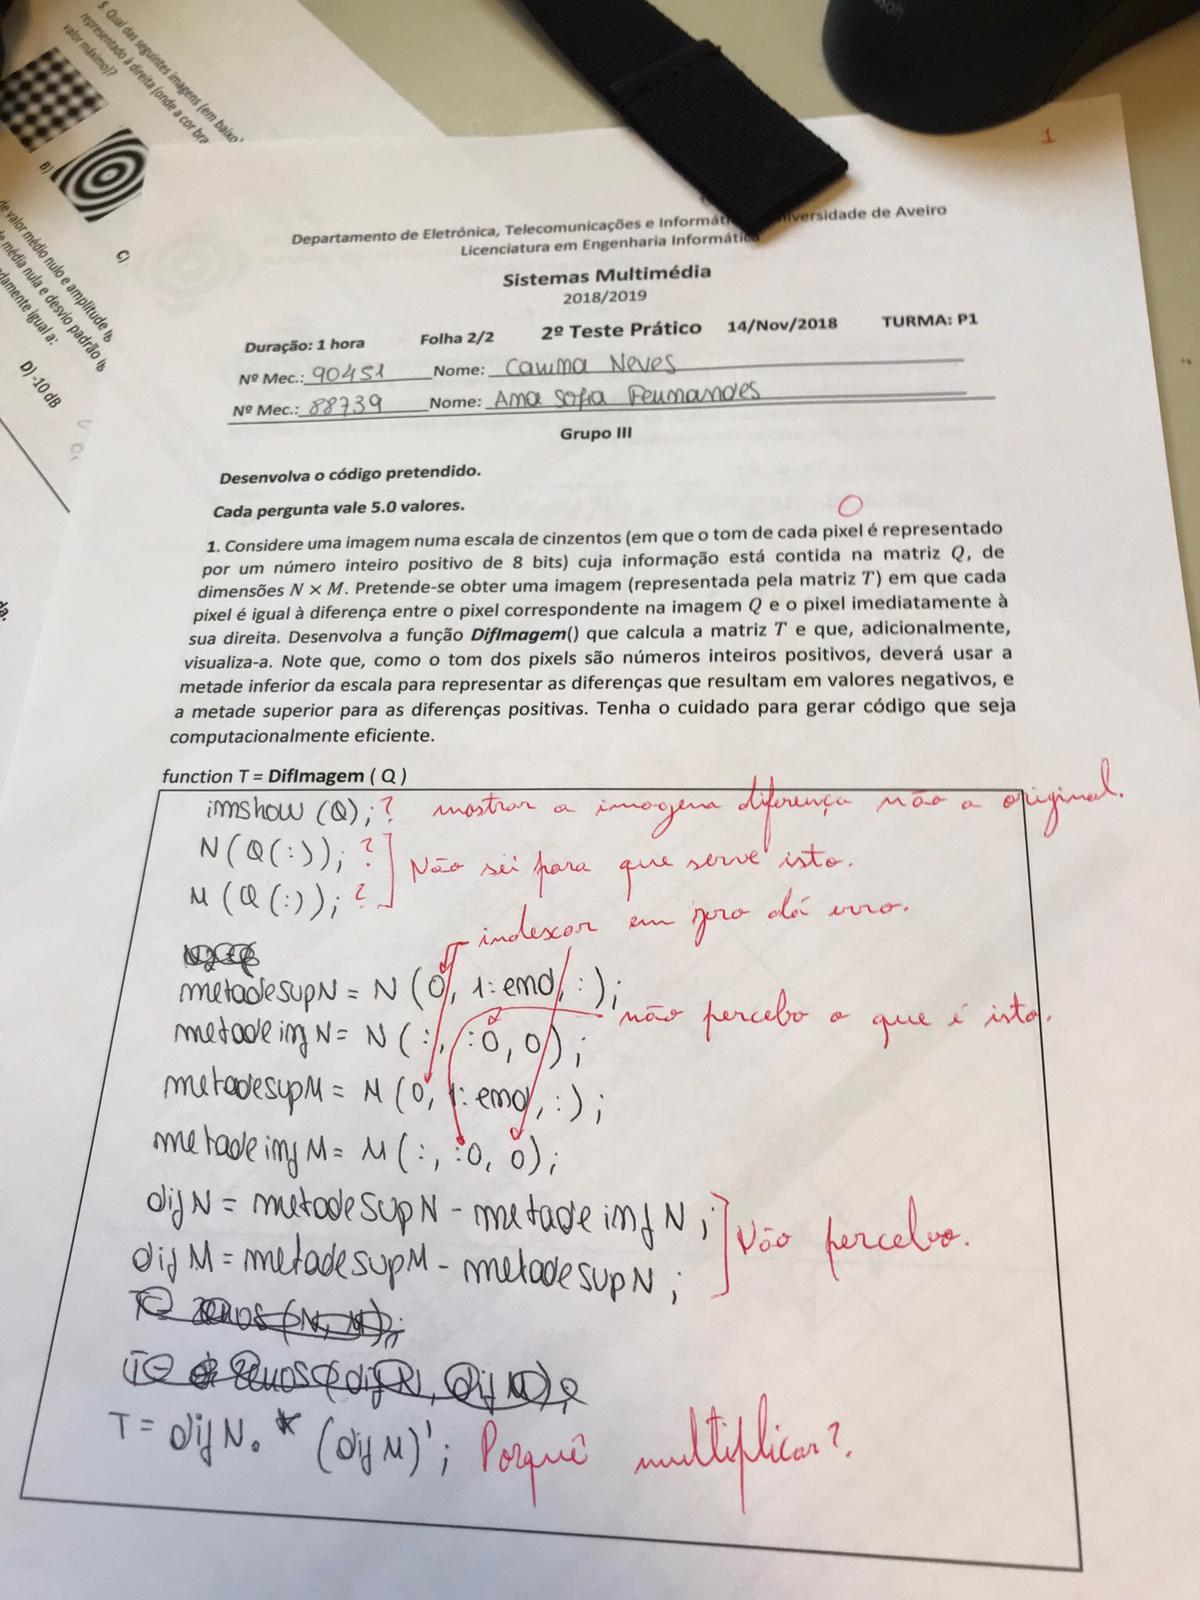 5. Qual das seguintes imagens (em baixo)
representado à direita (onde a cor bra
valor máximo)?
B)
C)
de valor médio nulo e amplitude
média nula e desvio padrão
damente igual a:
D) -10 dB
1
Departamento de Eletrónica, Telecomunicações e Informáti versidade de Aveiro
Licenciatura em Engenharia Informática
Sistemas Multimédia
2018/2019
Duração: 1 hora Folha 2/2 2º Teste Prático 14/Nov/2018 TURMA: P1
Nº Mec.: 90451 Nome: Carina Neves
Nº Mec.: 88739 Nome: Ana Sofia Fernandes
Grupo III
Desenvolva o código pretendido.
Cada pergunta vale 5.0 valores.
0
1. Considere uma imagem numa escala de cinzentos (em que o tom de cada pixel é representado
por um número inteiro positivo de 8 bits) cuja informação está contida na matriz Q, de
dimensões N × M. Pretende-se obter uma imagem (representada pela matriz T) em que cada
pixel é igual à diferença entre o pixel correspondente na imagem Q e o pixel imediatamente à
sua direita. Desenvolva a função DifImagem() que calcula a matriz T e que, adicionalmente,
visualiza-a. Note que, como o tom dos pixels são números inteiros positivos, deverá usar a
metade inferior da escala para representar as diferenças que resultam em valores negativos, e
a metade superior para as diferenças positivas. Tenha o cuidado para gerar código que seja
computacionalmente eficiente.
function T = DifImagem ( Q )
imshow (Q); ? mostrar a imagem diferença não a original.
N(Q(:)); ?
M(Q(:)); ? Não sei para que serve isto.
indexar em zero dá erro.
metadesupN = N (0, 1:end, :);
não percebo o que é isto.
metadeinfN = N (:, :0, 0);
metadesupM = M (0, 1:end, :);
metadeinfM = M (:, :0, 0);
difN = metadesupN - metadeinfN;
difM = metadesupM - metadesupN; Não percebo.
T = difN.* (difM)'; Porquê multiplicar?